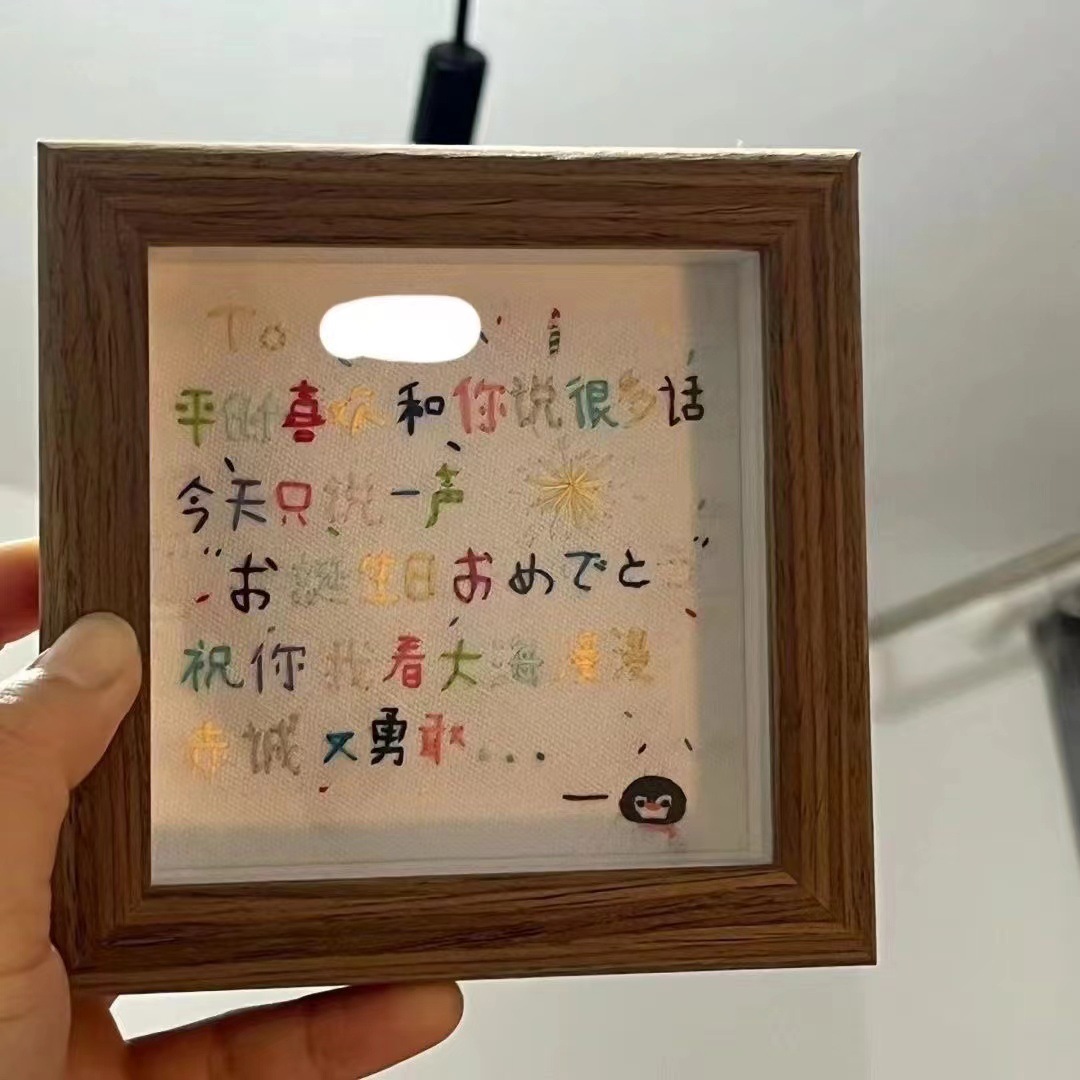 To
平时喜欢和你说很多话
今天只说一声
"お誕生日おめでとう"
祝你我看大海漫漫
赤城又勇敢...
—